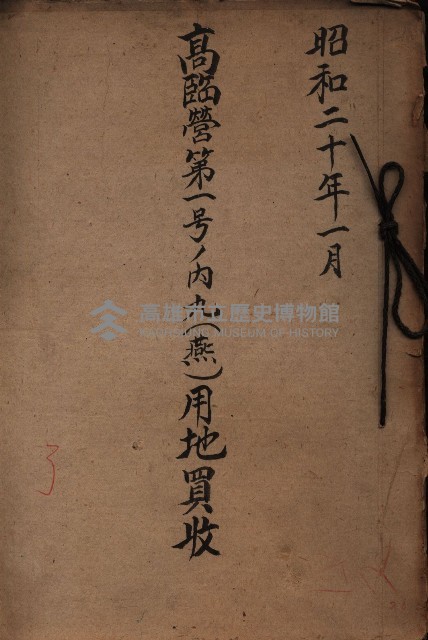 昭和二十年一月
高臨營第一号ノ内九(燕)用地買收
高雄市立歷史博物館
KAOHSIUNG MUSEUM OF HISTORY
了